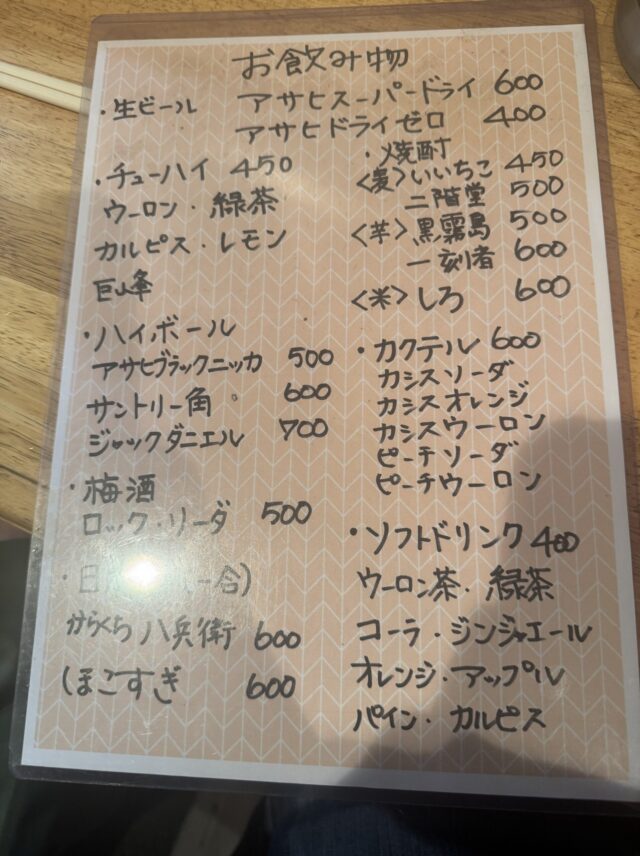 お飲み物
・生ビール アサヒスーパードライ 600
アサヒドライゼロ 400
・チューハイ 450
ウーロン・緑茶
カルピス・レモン
巨峰
・ハイボール
アサヒブラックニッカ 500
サントリー角 600
ジャックダニエル 700
・梅酒
ロック・ソーダ 500
・日 (一合)
からくち八兵衛 600
しほこすぎ 600
・焼酎
〈麦〉いいちこ 450
二階堂 500
〈芋〉黒霧島 500
一刻者 600
〈米〉しろ 600
・カクテル 600
カシスソーダ
カシスオレンジ
カシスウーロン
ピーチソーダ
ピーチウーロン
・ソフトドリンク 400
ウーロン茶・緑茶
コーラ・ジンジャエール
オレンジ・アップル
パイン・カルピス